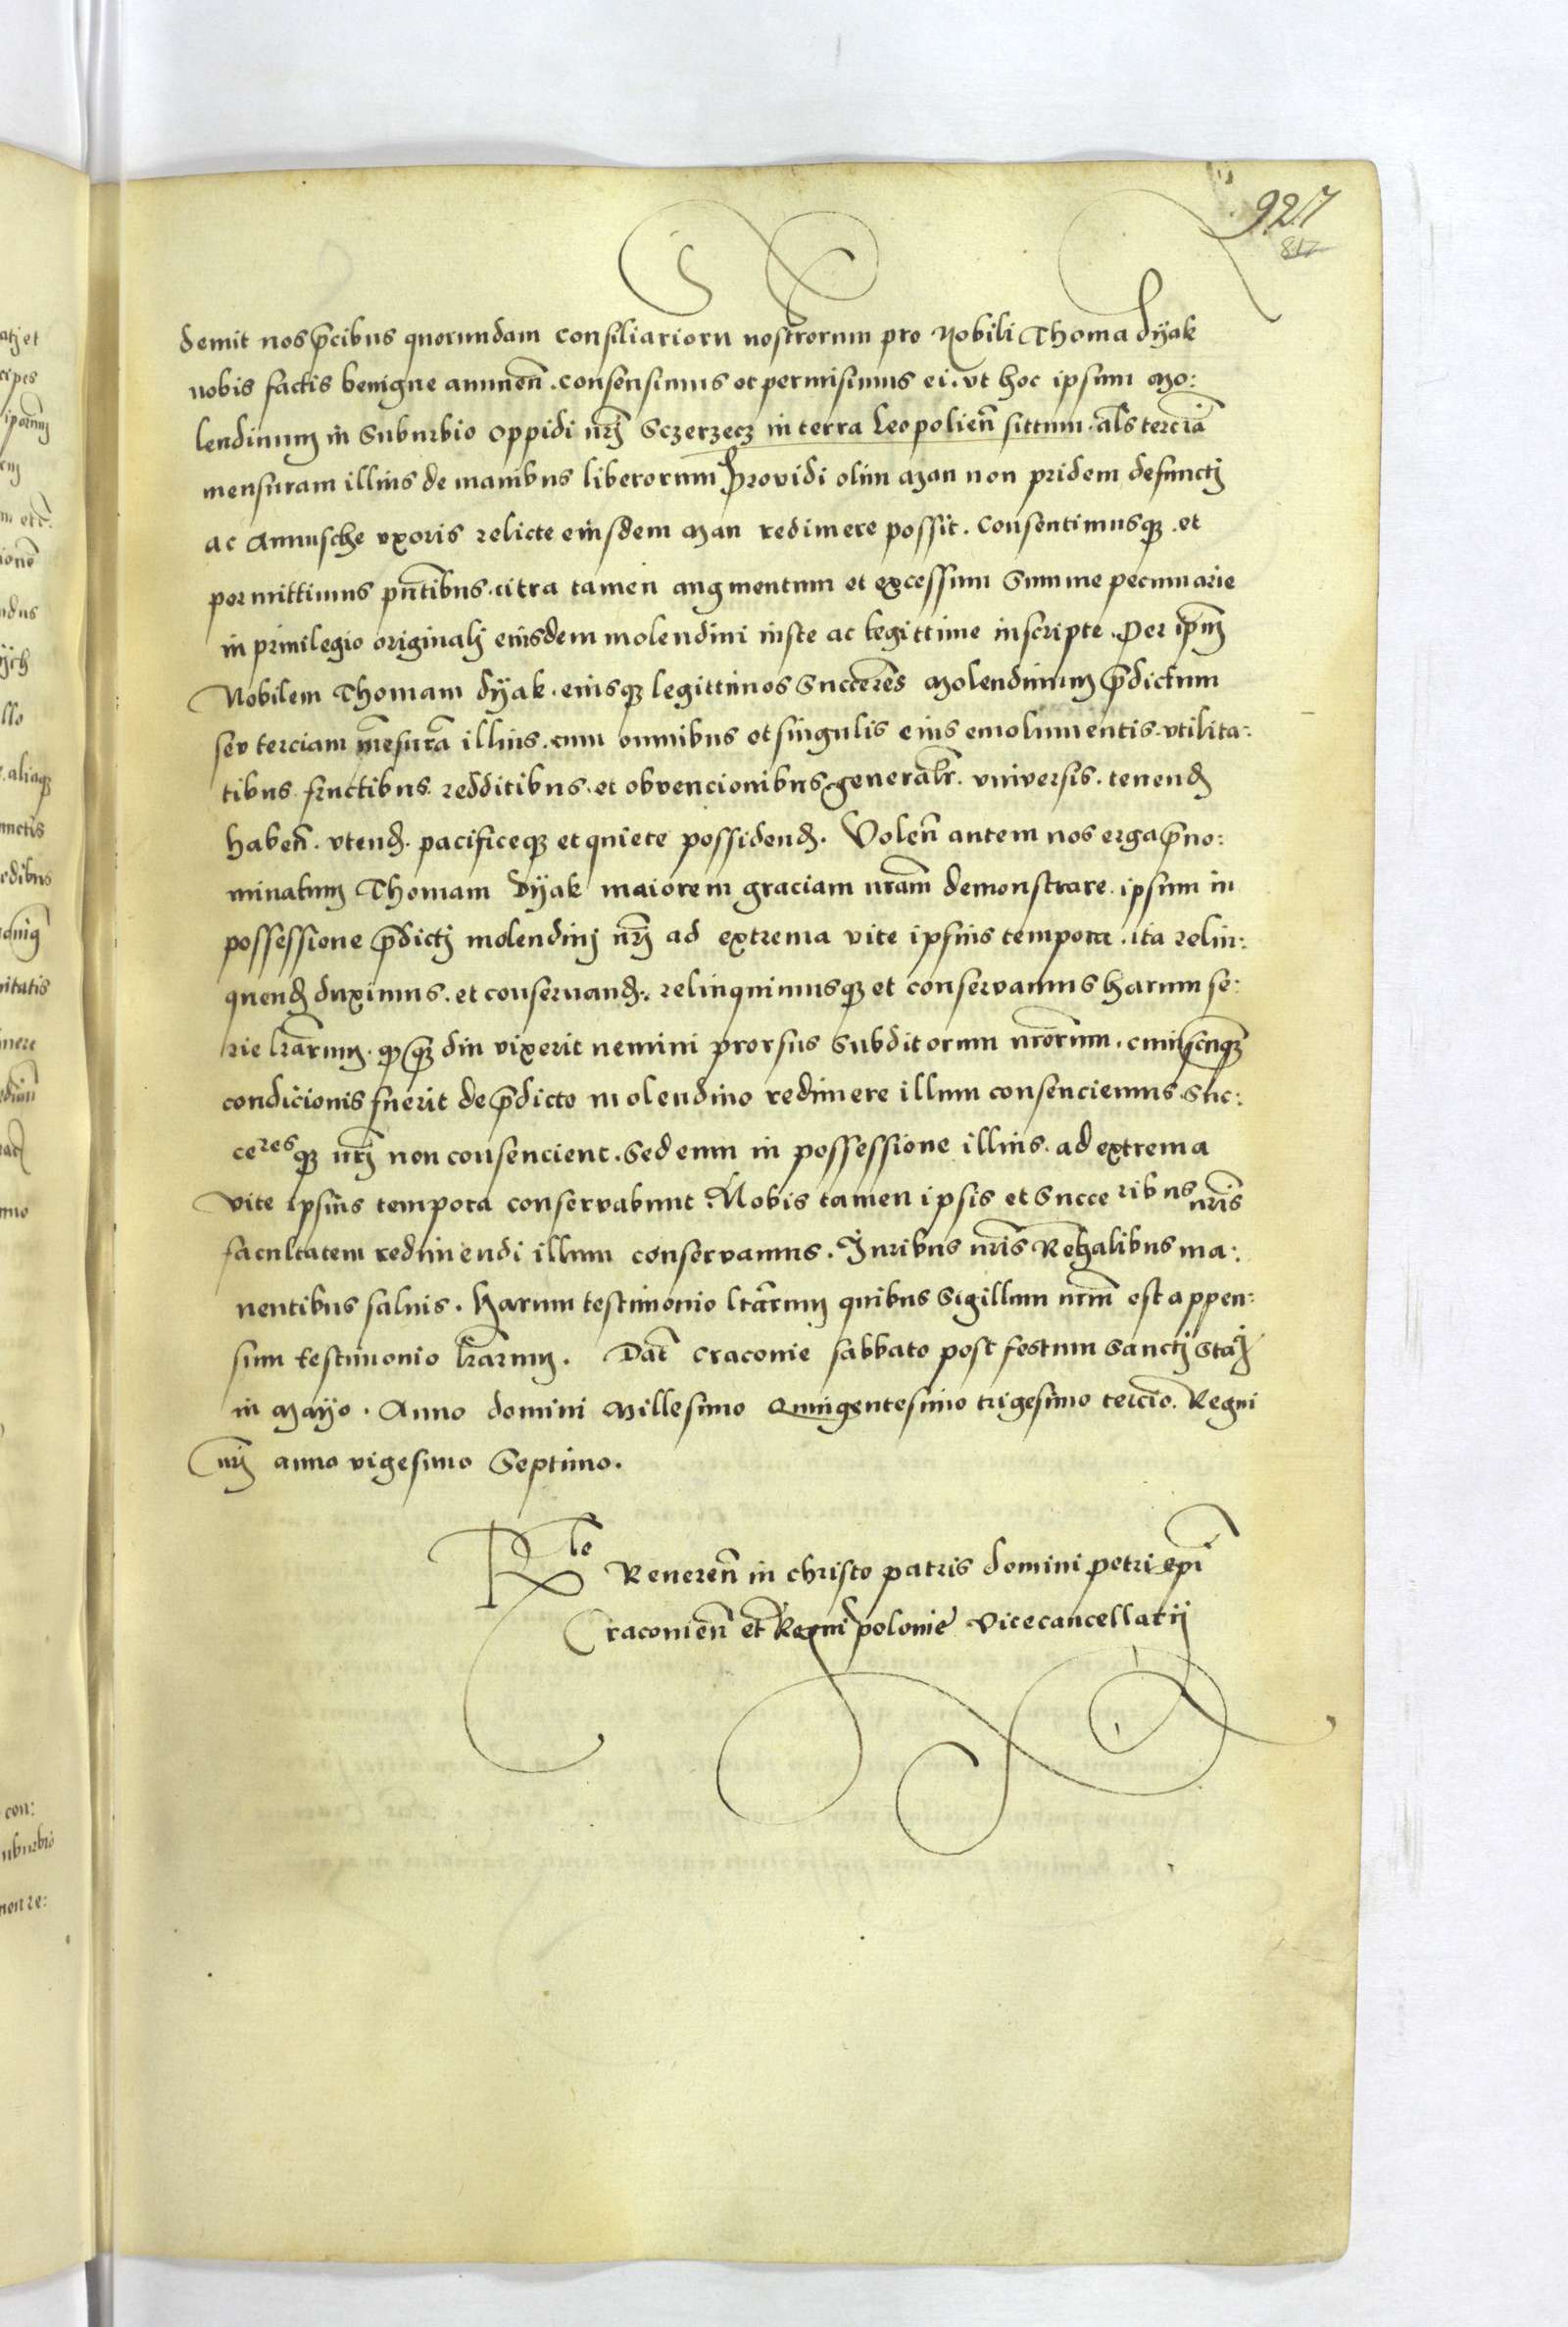 927
817
demit nos p̄cibus quorundam consiliariorū nostrorum pro Nobili Thoma Dÿak
nobis factis benigne annuen̄. consensimus et permisimus ei. vt hoc ipsum mo:
lendinum in suburbio oppidi nrj̄ Sczerzecz in terra Leopolien̄ sittum. al̄s terciā
mensuram illius de manibus liberorum Providi olim Man non pridem defunctj
ac Annusche vxoris relicte eiusdem Man redimere possit. Consentimusqȝ. et
permittimus pn̄tibus. citra tamen augmentum et excessum Summe pecuniarie
in priuilegio originalj eiusdem molendini iuste ac legittime inscripte. Per ip̄m
Nobilem Thomam Dÿak. eiusqȝ legittimos Succeres̄ Molendinum p̄dictum
sev terciam mēsurā illius. cum omnibus et singulis eius emolumentis. vtilita:
tibus. fructibus. redditibus. et obvencionibus generalr̄. vniversis. tenend̄
haben̄. vtend̄. pacificeqȝ et quiete possidend̄. Volen̄ autem nos erga p̄no:
minatum Thomam Dÿak maiorem graciam nram̄ demonstrare. ipsum in
possessione p̄dictj molendinj nrj̄ ad extrema vite ipsius tempora. ita relin:
quend̄ duximus. et conseruand̄. relinquimusqȝ et conservamus harum se:
rie lrārum. qȝ qȝ diu vixerit nemini prorsus Subditorum nrōrum. cuiuscūqȝ
condicionis fuerit de p̄dicto molendino redimere illum consenciemus. Suc:
ceres qȝ nrj̄ non consencient. Sed eum in possessione illius. ad extrema
vite ipsius tempora conservabunt. Nobis tamen ipsis et Succe ribus nrīs
facultatem redimendi illum conservamus. Iuribus nrīs Regalibus ma:
nentibus saluis. Harum testimonio lrārum quibus Sigillum nrm̄ est appen:
sum testimonio lrārum. Dat̄ Craconie sabbato post festum Sanctj Staī
in Mayo. Anno domini Millesimo Quingentesimo trigesimo tercio. Regni
nrj̄ anno vigesimo Septimo.
Rle Reveren̄ in christo patris domini petri ep̄i
Craconien̄ et Regni polonie Vicecancellarij